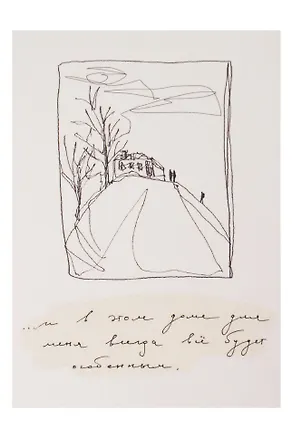 ...и в этом доме для
меня всегда всё будет
особенным.